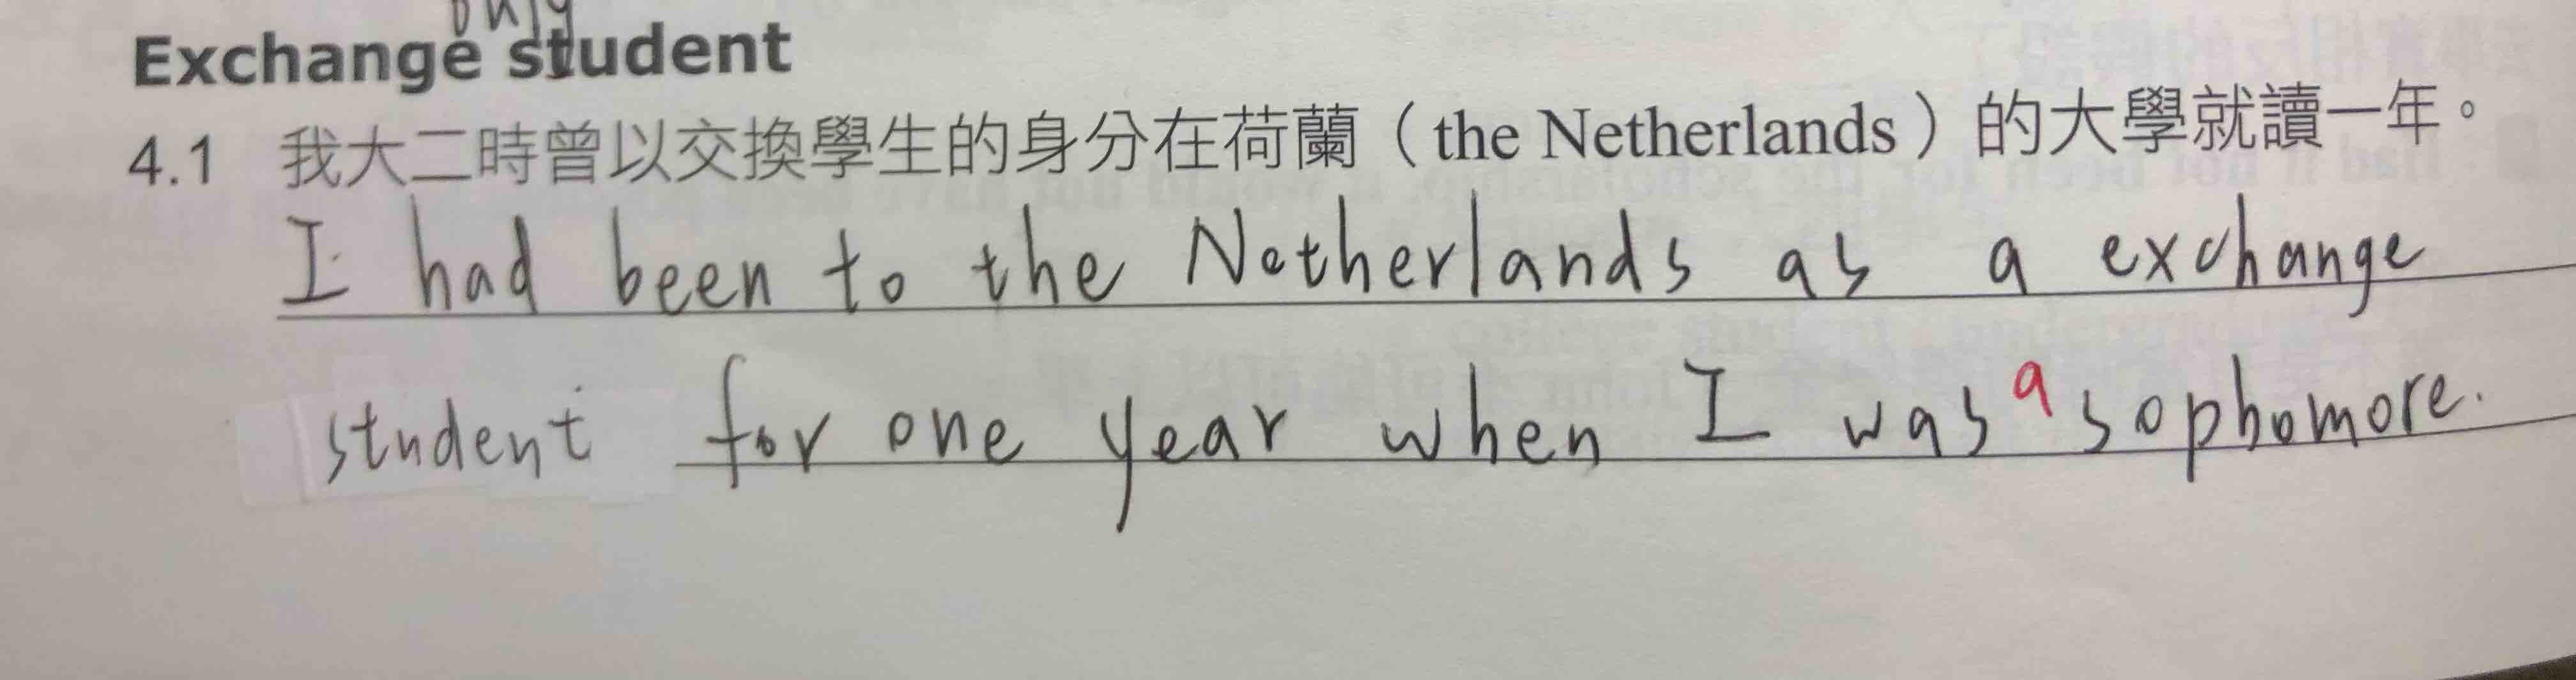 only
Exchange student
4.1 我大二時曾以交換學生的身分在荷蘭（the Netherlands）的大學就讀一年。
I had been to the Netherlands as a exchange
student for one year when I was a sophomore.